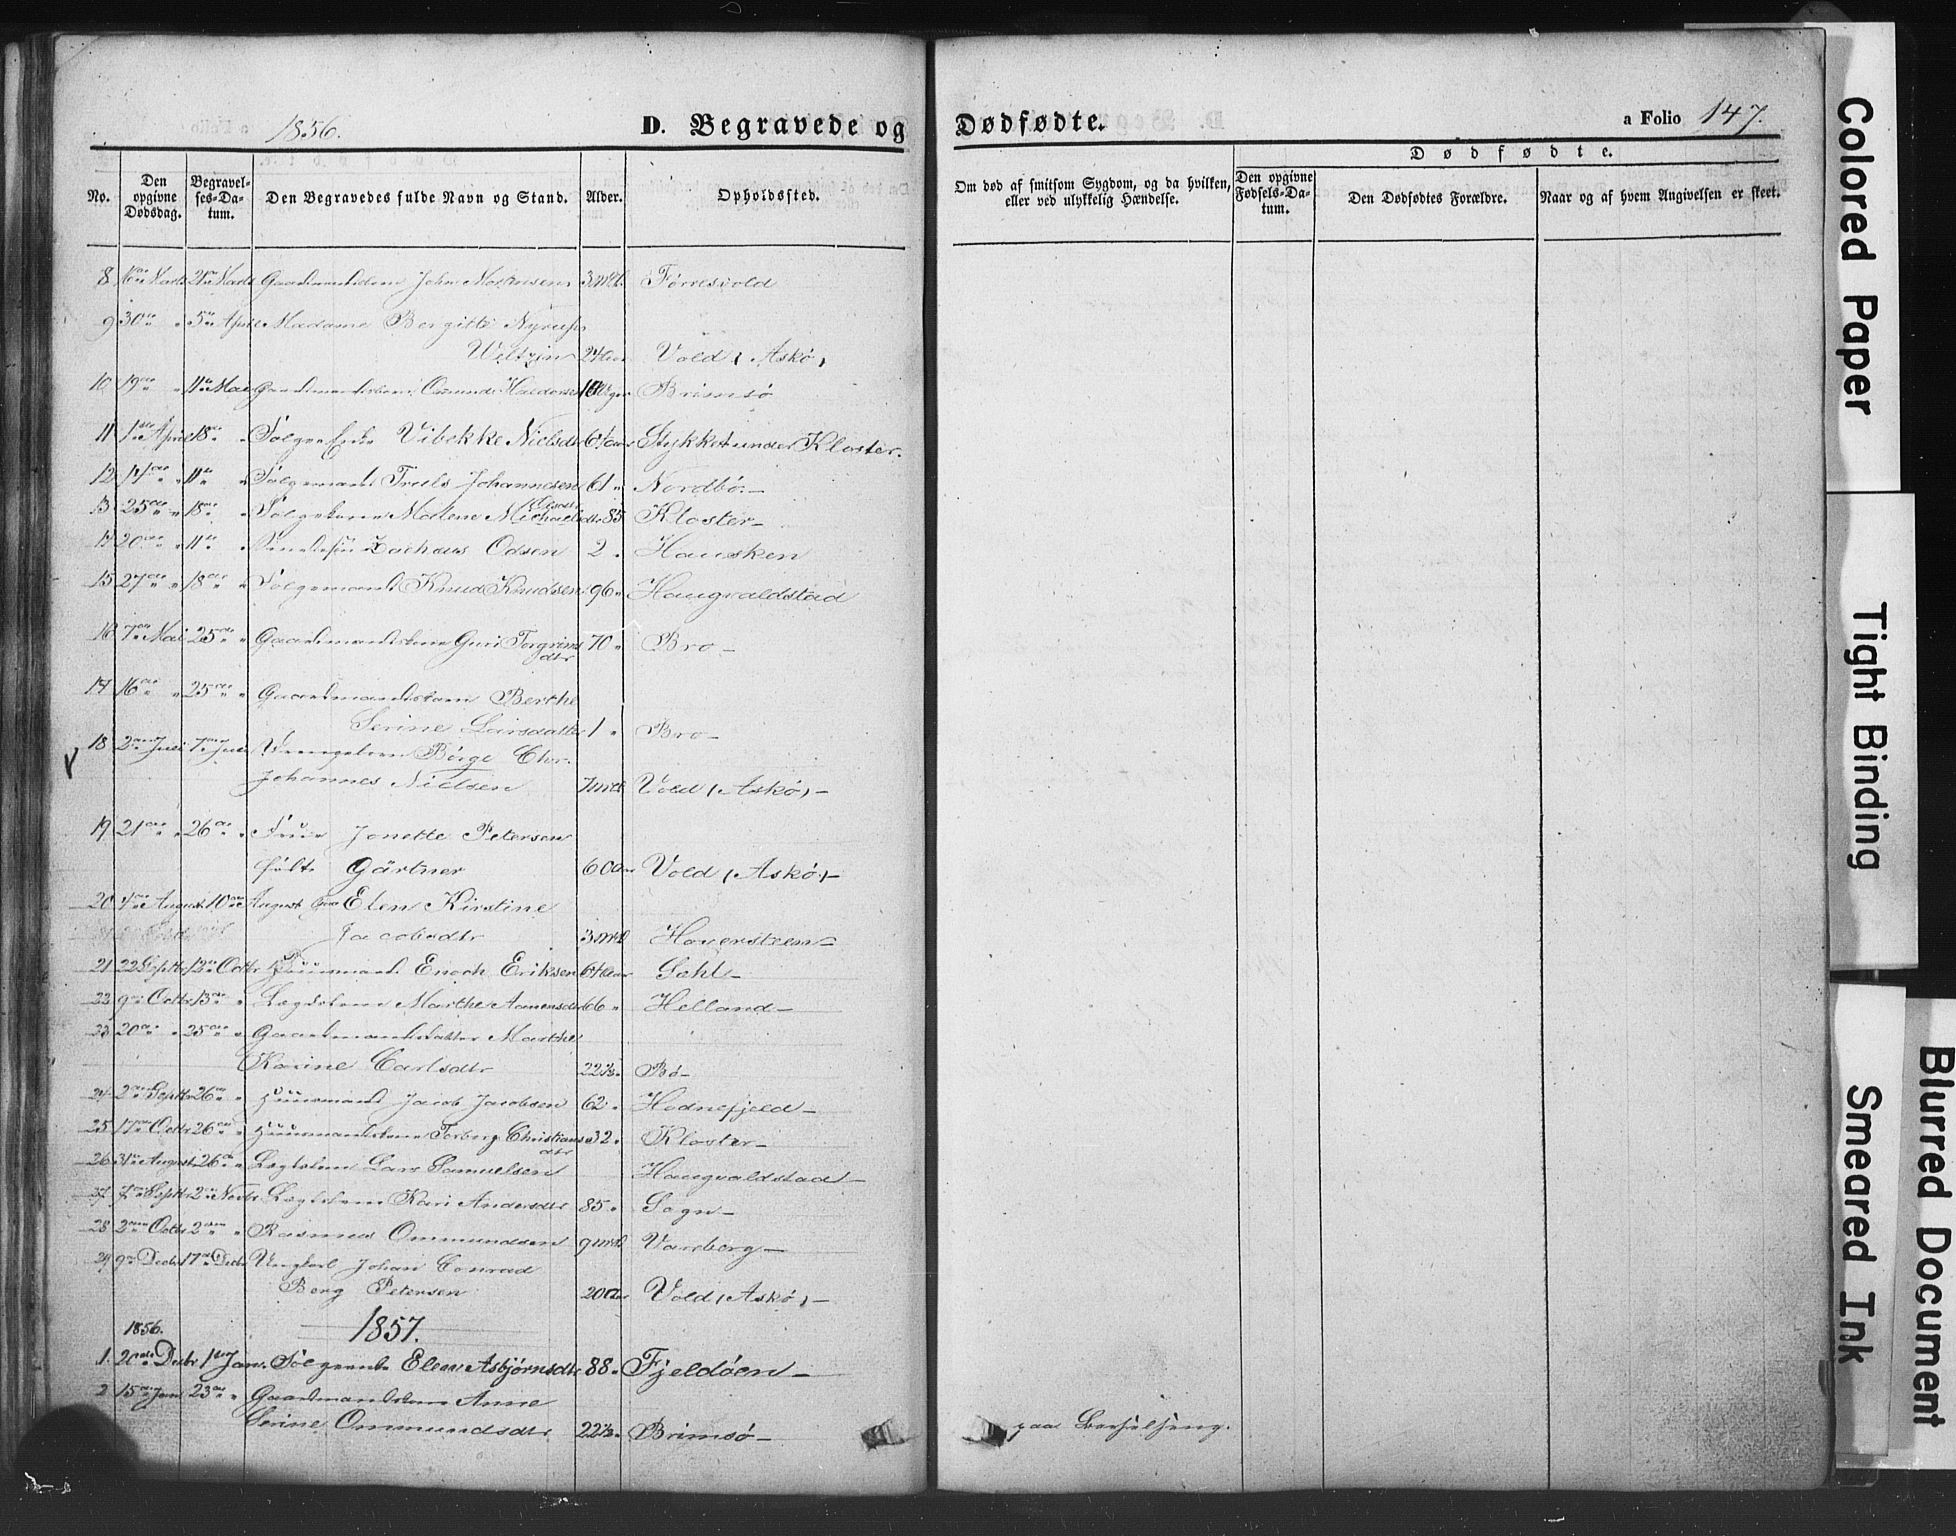 1856.
D. Begravede og
Dødfødte.
a Folio 147.
No.
Den opgivne Dødsdag.
Begravelses-Datum.
Den Begravedes fulde Navn og Stand.
Alder.
Opholdssted.
Om død af smitsom Sygdom, og da hvilken, eller ved ulykkelig Hændelse.
Dødfødte.
Den opgivne Fødsels-Datum.
Den Dødfødtes Forældre.
Naar og af hvem Angivelsen er skeet.
8 16de Marts 21de Marts John Mortensen 3 Mdr Førresvold
9 30te " 5te April Madame Bergitte
Weltzin 24 Aar Vold (Askø)
10 19de " 11te Mai Osmund Brimsø
11 1ste April 18de " Vibekke Nielsdtr 67 aar Stykket under Kloster.
12 11te " Truls Johannesen 61 " Nordbø. -
13 25de " 18de " Malene Michaelsdtr 85 Kloster -
14 20de " 11te " Zachæus Odsen 2 " Hausken
15 27de " 18de " Knud Knudsen 96 " Haugvaldstad
16 7de Mai 25de " Guri Torgrims
dtr 70 " Bro -
17 16de " 25de " Berthe
Serine Larsdatter 1 " Bro -
18 2den Juli 7de Juli Børge Chr.
Johannes Nielsen 7 Mdr Vold (Askø) -
19 21de " 26de " Frue Jonette Petersen
født Gärtner 60 Aar Vold (Askø) -
20 4de August 10de August Elen Kirstine
Jacobsdtr 3 Mdr Hoversteen -
21 22 Septbr 12te Octbr Huusmand Enoch Eriksen 64 Aar Gahl -
22 9de Octbr 13de " Lægdslem Marthe 66 " Helland -
23 20de " 25de " Gaardmandsdatter Marthe
Karine Carlsdtr 22½ " Bø -
24 2den Septbr 26de " Huusmand Jacob Jacobsen 62 " Hodnefjeld -
25 17de Octbr 26de " Torberg Christians
dtr 32 " Kloster -
26 31te August 26de " Lægdslem Lars Samuelsen Haugvaldstad -
27 7de Septbr 2den Novbr Lægdslem Kari Andersdtr 85 " Sogn -
28 2den Octbr 2den " Rasmus Ommundsen 9 Mdr Vareberg -
29 9de Decbr 17de Decbr Ungkarl Johan Conrad
Berg Petersen 20 Aar Vold (Askø) -
1856. 1857.
1. 20de Decbr 1ste Jan. Elen Asbjørnsdtr 88 " Fjeldøen -
2 15de Jan 23de " Gaardmandskone Anne
Serine Ommundsdtr 22½ " Brimsø - paa Barselseng.
Colored Paper
Tight Binding
Blurred Document
Smeared Ink